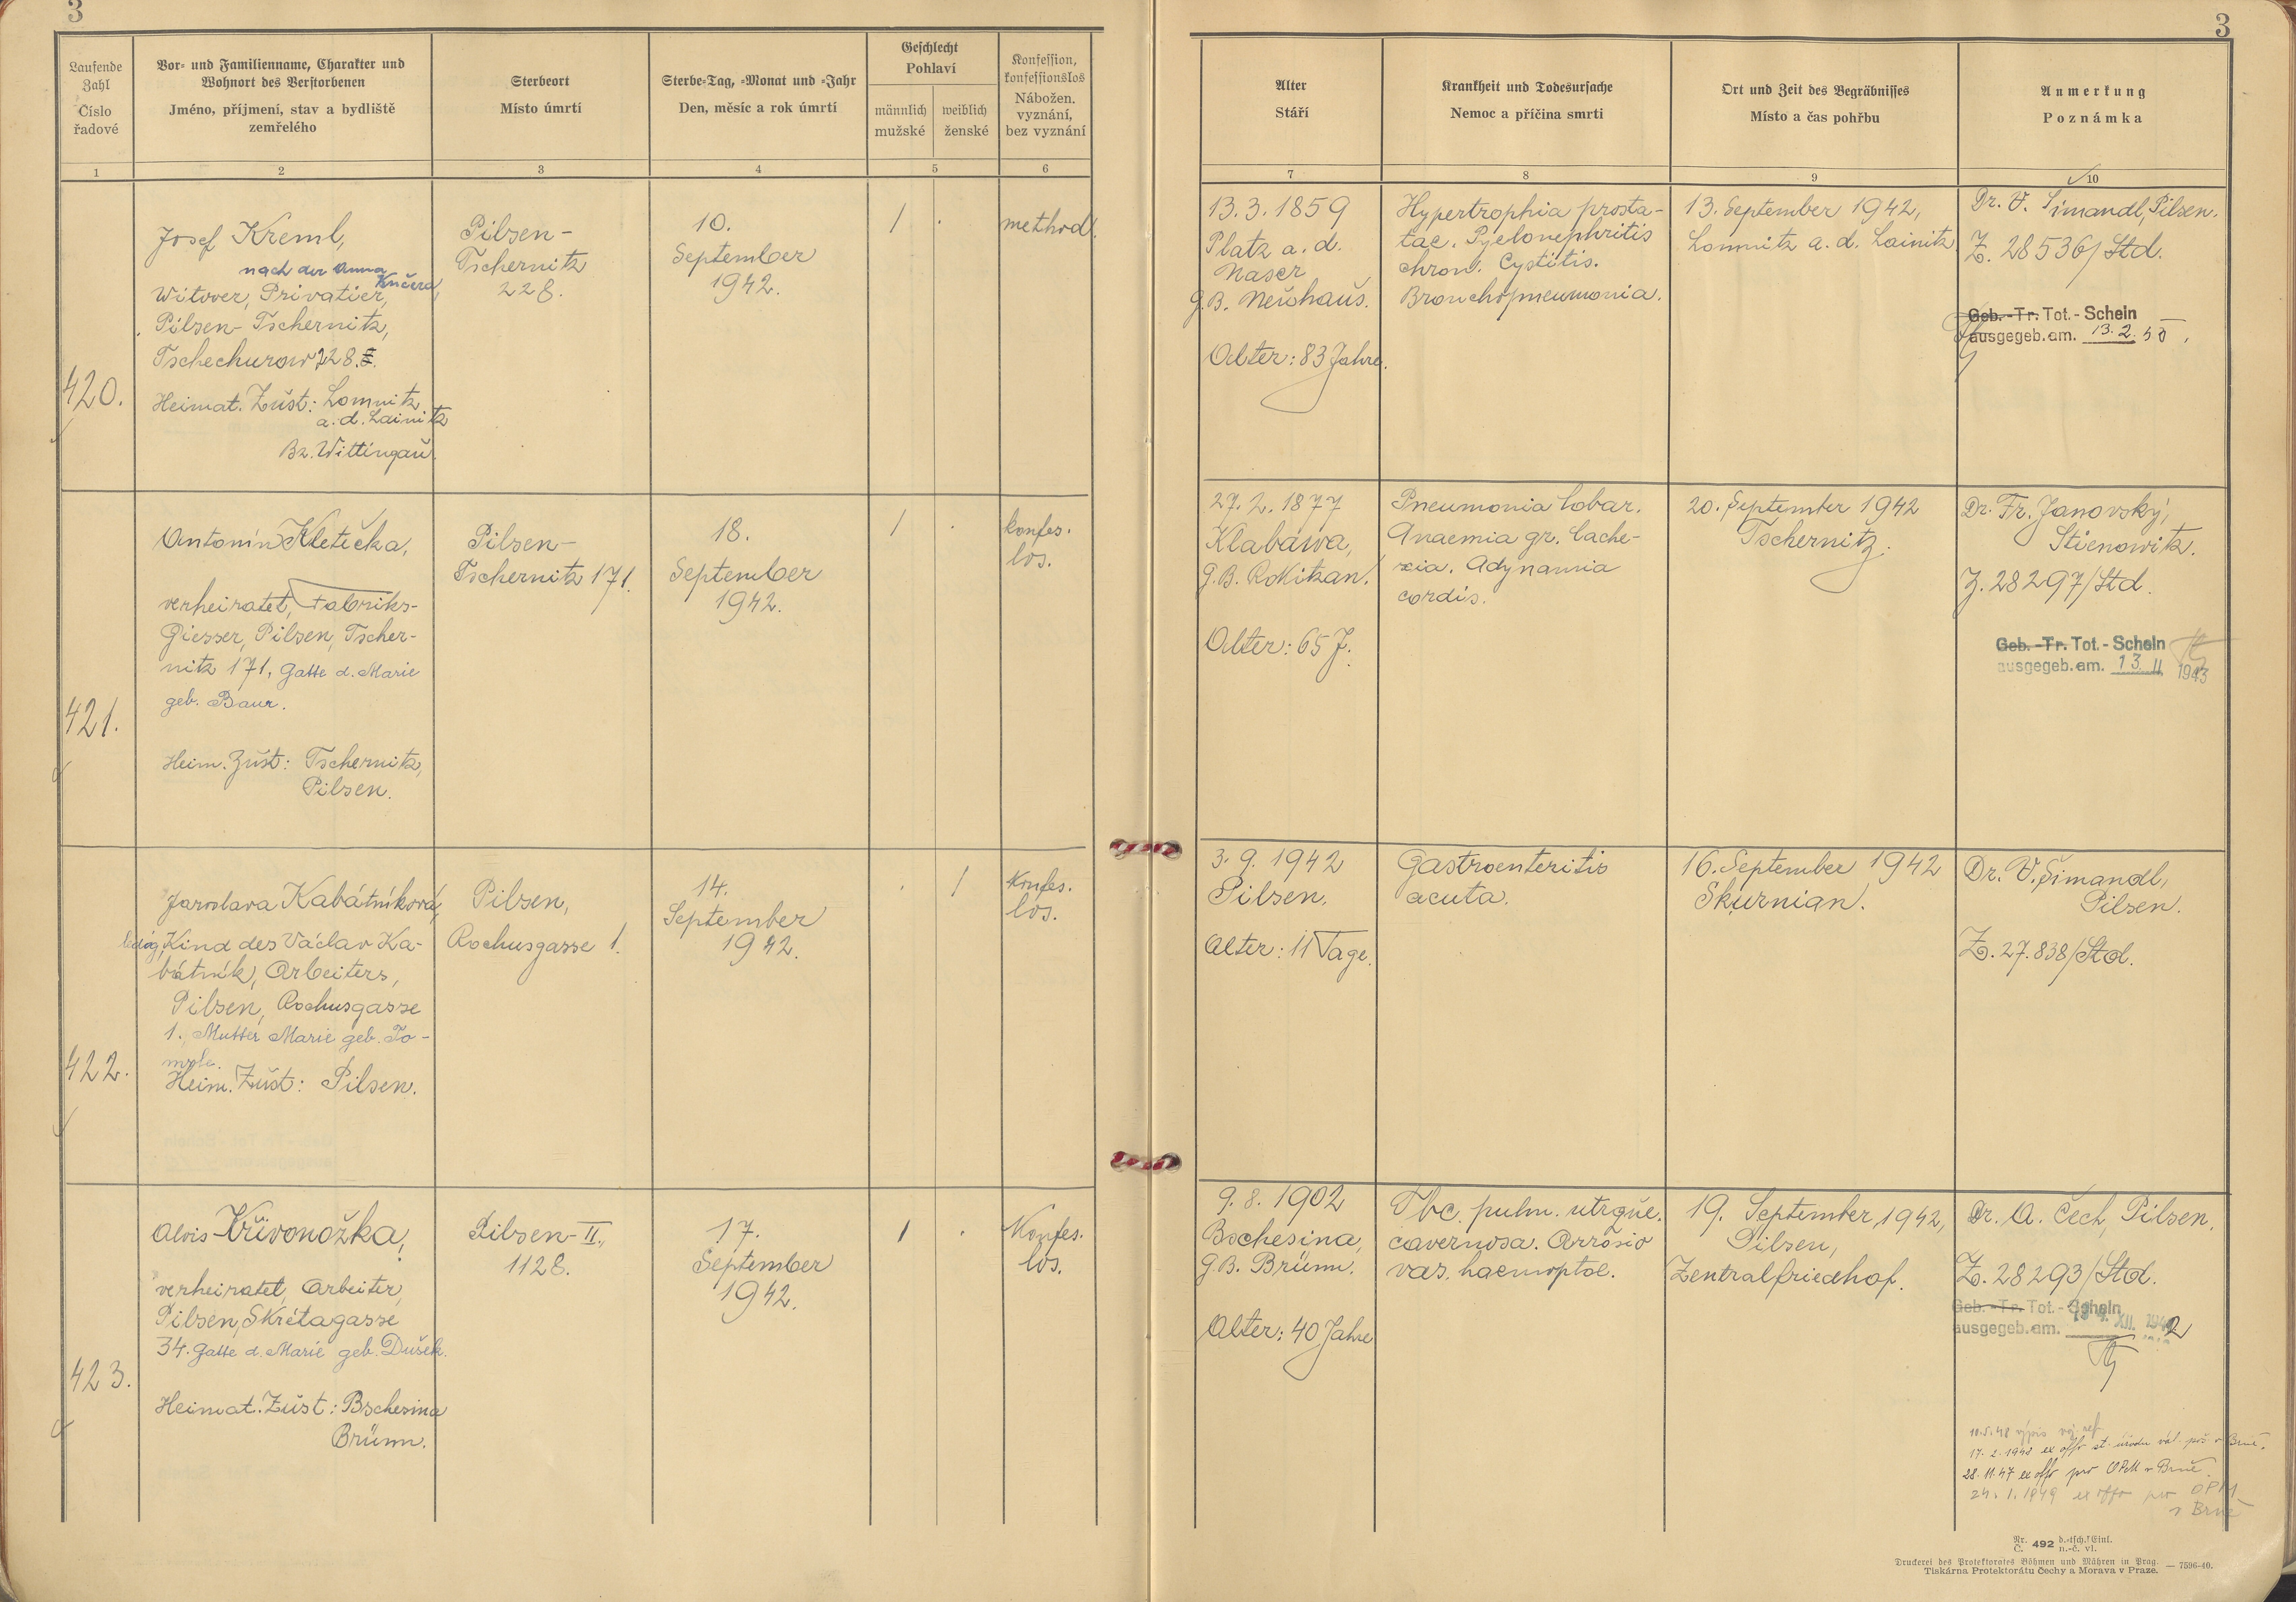 3
3
Laufende
Zahl
Číslo
řadové
Vor- und Familienname, Charakter und
Wohnort des Verstorbenen
Jméno, příjmení, stav a bydliště
zemřelého
Sterbeort
Místo úmrtí
Sterbe-Tag, -Monat und -Jahr
Den, měsíc a rok úmrtí
Geschlecht
Pohlaví
männlich
mužské
weiblich
ženské
Konfession,
konfessionslos
Nábožen.
vyznání,
bez vyznání
Alter
Stáří
Krankheit und Todesursache
Nemoc a příčina smrti
Ort und Zeit des Begräbnisses
Místo a čas pohřbu
Anmerkung
Poznámka
1 2 3 4 5 6 7 8 9 10
420.
Josef Kreml,
nach der Anna
Kučera,
Witwer, Privatier,
Pilsen-Tschernitz,
Tschechurow 228.
Heimat. Zušt: Lomnitz
a. d. Lainitz
Bz. Wittingau.
Pilsen-
Tschernitz
228.
10.
September
1942.
1 .
method.
13. 3. 1859
Platz a. d.
Naser
G.B. Neuhaus.
Alter: 83 Jahre.
Hypertrophia prosta-
tae. Pyelonephritis
chron. Cystitis.
Bronchopneumonia.
13. September 1942,
Lomnitz a. d. Lainitz
Dr. V. Šimandl, Pilsen.
Z. 28536/Std.
Geb.-Tr. Tot.-Schein
ausgegeb. am. 13. 2. 50.
421.
Antonín Kletečka,
verheiratet, Fabriks-
Giesser, Pilsen, Tscher-
nitz 171, Gatte d. Marie
geb. Baur.
Heim. Zušt: Tschernitz,
Pilsen.
Pilsen-
Tschernitz 171.
18.
September
1942.
1 .
konfes.
los.
27. 2. 1877
Klabawa,
G.B. Rokitzan.
Alter: 65 J.
Pneumonia lobar.
Anaemia gr. Cache-
xia. Adynamia
cordis.
20. September 1942
Tschernitz.
Dr. Fr. Janovský,
Stienowitz.
Z. 28297/Std.
Geb.-Tr. Tot.-Schein
ausgegeb. am. 13. II. 1943
422.
Jaroslava Kabátníková,
ledig, Kind des Václav Ka-
bátník, Arbeiters,
Pilsen, Rochusgasse
1., Mutter Marie geb. To-
Heim. Zušt: Pilsen.
Pilsen,
Rochusgasse 1.
14.
September
1942.
. 1
Konfes.
los.
3. 9. 1942
Pilsen.
Alter: 11 Tage.
Gastroenteritis
acuta.
16. September 1942
Skurnian.
Dr. V. Šimandl,
Pilsen.
Z. 27.838/Std.
423.
Alois Křivonožka,
verheiratet, Arbeiter,
Pilsen, Skrétagasse
34. Gatte d. Marie geb. Dušek.
Heimat. Zušt: Bschesina
Brünn.
Pilsen-II.,
1128.
17.
September
1942.
1 .
Konfes.
los.
9. 8. 1902
Bschesina,
G.B. Brünn.
Alter: 40 Jahre
Tbc. pulm. utrque.
cavernosa. Arrosio
vas. haemoptoe.
19. September 1942,
Pilsen,
Zentralfriedhof.
Dr. A. Čech, Pilsen.
Z. 28293/Std.
Geb.-Tr. Tot.-Schein
ausgegeb. am. XII. 1942
10. 5. 48 výpis
17. 2. 1948 ex offo st. úřadu vál. poš. v Brně.
28. 11. 47 ex offo pro OPM v Brně.
24. 1. 1949 ex offo pro OPM
v Brně
Nr. 492 d.-tsch. Einl.
Č. n.-č. vl.
Druckerei des Protektorates Böhmen und Mähren in Prag. — 7596-40.
Tiskárna Protektorátu Čechy a Morava v Praze.